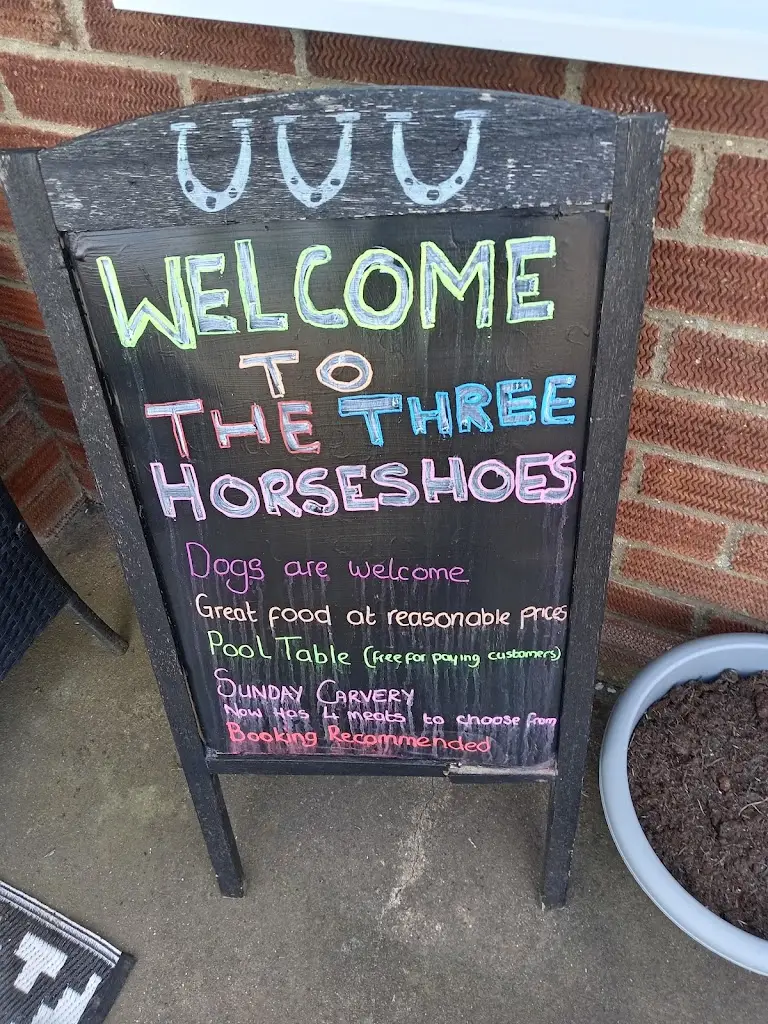 WELCOME
TO
THE THREE
HORSESHOES
Dogs are welcome
Great food at reasonable prices
Pool Table (free for paying customers)
SUNDAY CARVERY
Now has 4 meats to choose from
Booking Recommended